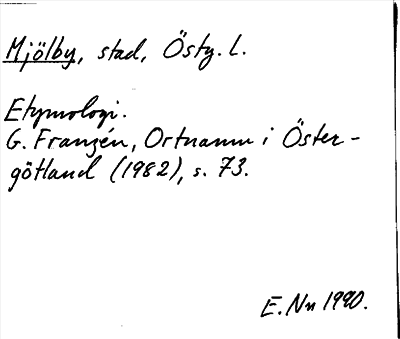 Mjölby, stad, Östg. l.
Etymologi.
G. Franzén, Ortnamn i Öster-
götland (1982), s. 73.
E. Nn 1990.